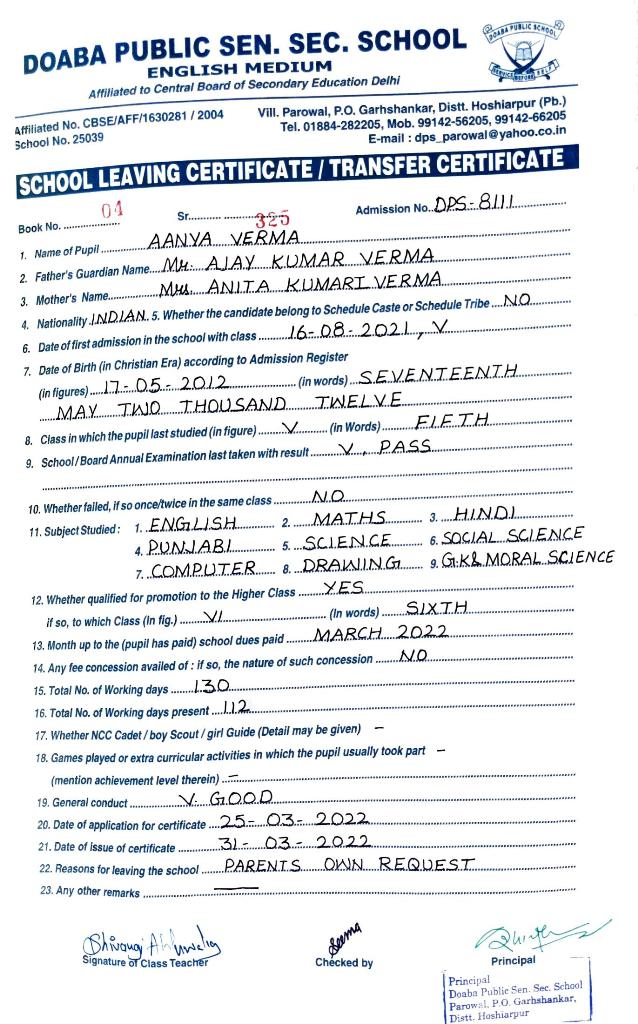 DOABA PUBLIC SEN. SEC. SCHOOL
ENGLISH MEDIUM
Affiliated to Central Board of Secondary Education Delhi
DOABA PUBLIC SCHOOL
SERVICE BEFORE SELF
Affiliated No. CBSE/AFF/1630281 / 2004
School No. 25039
Vill. Parowal, P.O. Garhshankar, Distt. Hoshiarpur (Pb.)
Tel. 01884-282205, Mob. 99142-56205, 99142-66205
E-mail : dps_parowal@yahoo.co.in
SCHOOL LEAVING CERTIFICATE / TRANSFER CERTIFICATE
Book No. 04 Sr. 325 Admission No. DPS-8111
1. Name of Pupil AANYA VERMA
2. Father's Guardian Name Mr. AJAY KUMAR VERMA
3. Mother's Name Mrs. ANITA KUMARI VERMA
4. Nationality INDIAN 5. Whether the candidate belong to Schedule Caste or Schedule Tribe NO
6. Date of first admission in the school with class 16-08-2021, V
7. Date of Birth (in Christian Era) according to Admission Register
(in figures) 17-05-2012 (in words) SEVENTEENTH
MAY TWO THOUSAND TWELVE
8. Class in which the pupil last studied (in figure) V (in Words) FIFTH
9. School/Board Annual Examination last taken with result V, PASS
10. Whether failed, if so once/twice in the same class NO
11. Subject Studied : 1. ENGLISH 2. MATHS 3. HINDI
4. PUNJABI 5. SCIENCE 6. SOCIAL SCIENCE
7. COMPUTER 8. DRAWING 9. G.K & MORAL SCIENCE
12. Whether qualified for promotion to the Higher Class YES
if so, to which Class (In fig.) VI (In words) SIXTH
13. Month up to the (pupil has paid) school dues paid MARCH 2022
14. Any fee concession availed of : if so, the nature of such concession NO
15. Total No. of Working days 130
16. Total No. of Working days present 112
17. Whether NCC Cadet / boy Scout / girl Guide (Detail may be given) –
18. Games played or extra curricular activities in which the pupil usually took part –
(mention achievement level therein) –
19. General conduct V. GOOD
20. Date of application for certificate 25-03-2022
21. Date of issue of certificate 31-03-2022
22. Reasons for leaving the school PARENTS OWN REQUEST
23. Any other remarks —
Shivangi Ahluwalia Seema
Signature of Class Teacher Checked by Principal
Principal
Doaba Public Sen. Sec. School
Parowal, P.O. Garhshankar,
Distt. Hoshiarpur